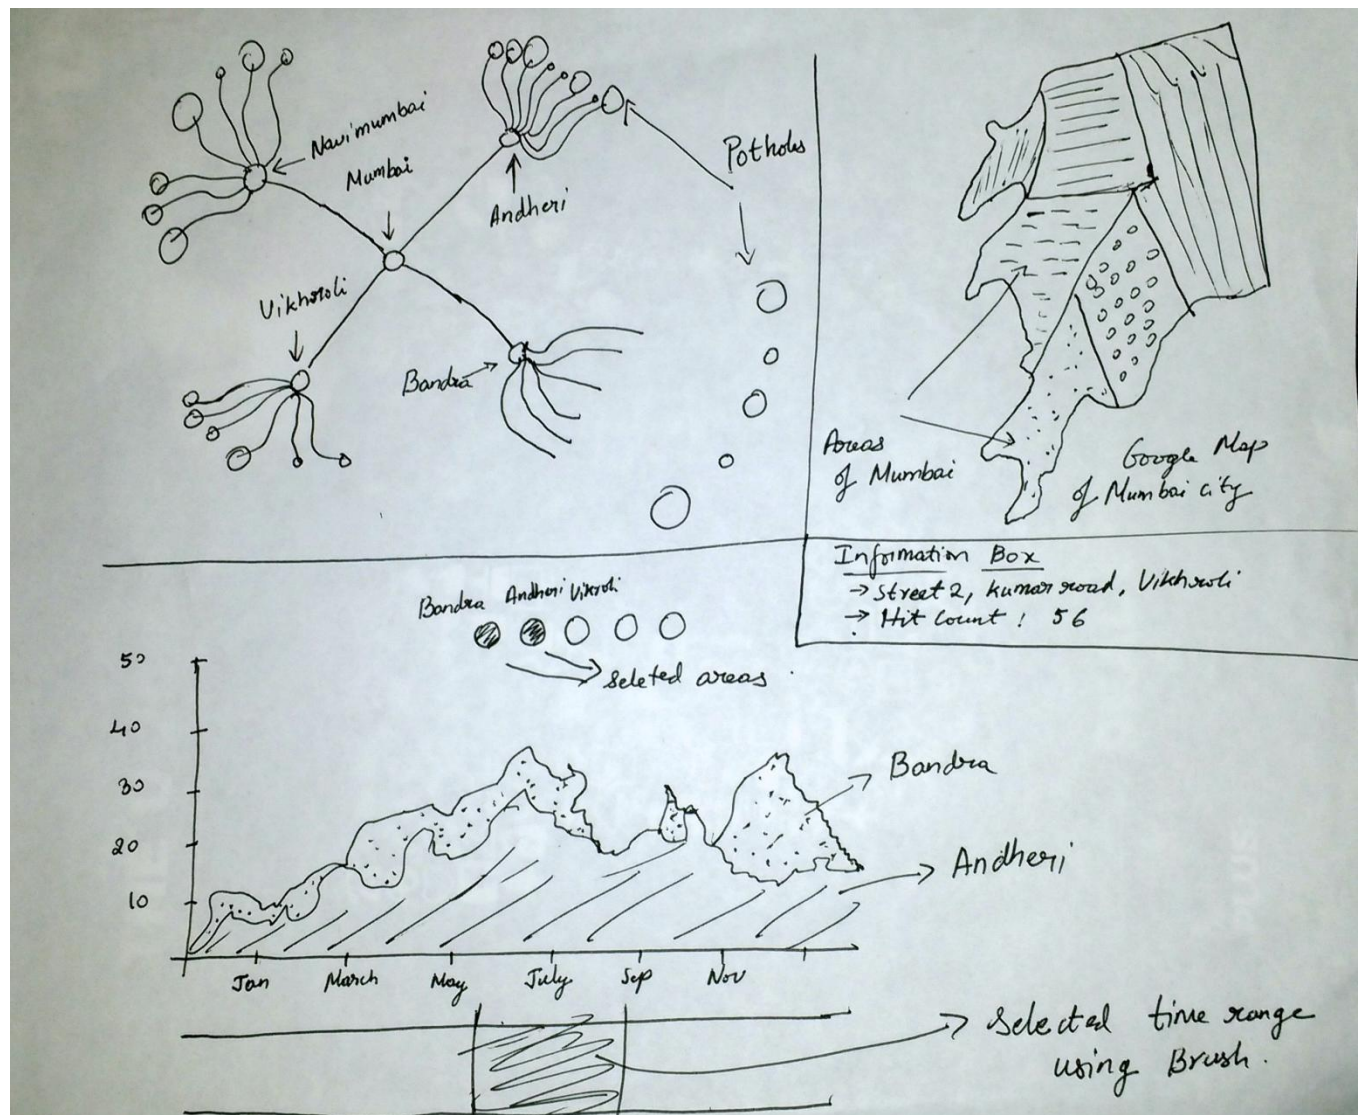 Navimumbai
Mumbai
Andheri
Potholes
Vikhroli
Bandra
Areas
of Mumbai
Google Map
of Mumbai city
Information Box
→ Street 2, Kumar road, Vikhroli
→ Hit Count : 56
Bandra Andheri Vikroli
seleted areas
50
40
30
20
10
Bandra
Andheri
Jan March May July Sep Nov
Selected time range
using Brush.